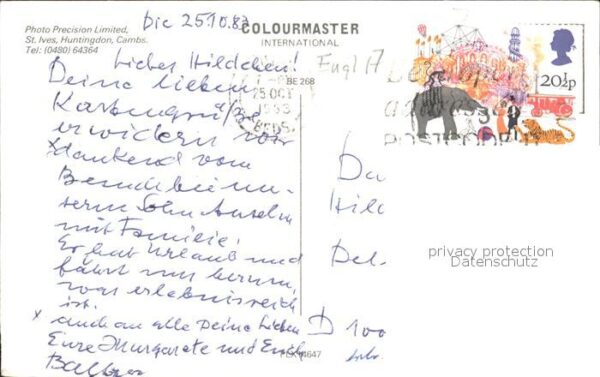 Die 25.10.83
Photo Precision Limited,
St. Ives, Huntingdon, Cambs.
Tel: (0480) 64364
COLOURMASTER
INTERNATIONAL
BE 268
Engl
20½p
25 OCT
1983
POSTCODE
Liebes Hildchen!
Deine lieben
Kartengrüße
erwidern wir
dankend vom
Besuch bei un-
serm Sohn Anselm
mit Familie.
Er hat Urlaub und
fährt uns herum,
was erlebnisreich
ist.
x auch an alle Deine Lieben
Eure Margarete und
D 100
privacy protection
Datenschutz